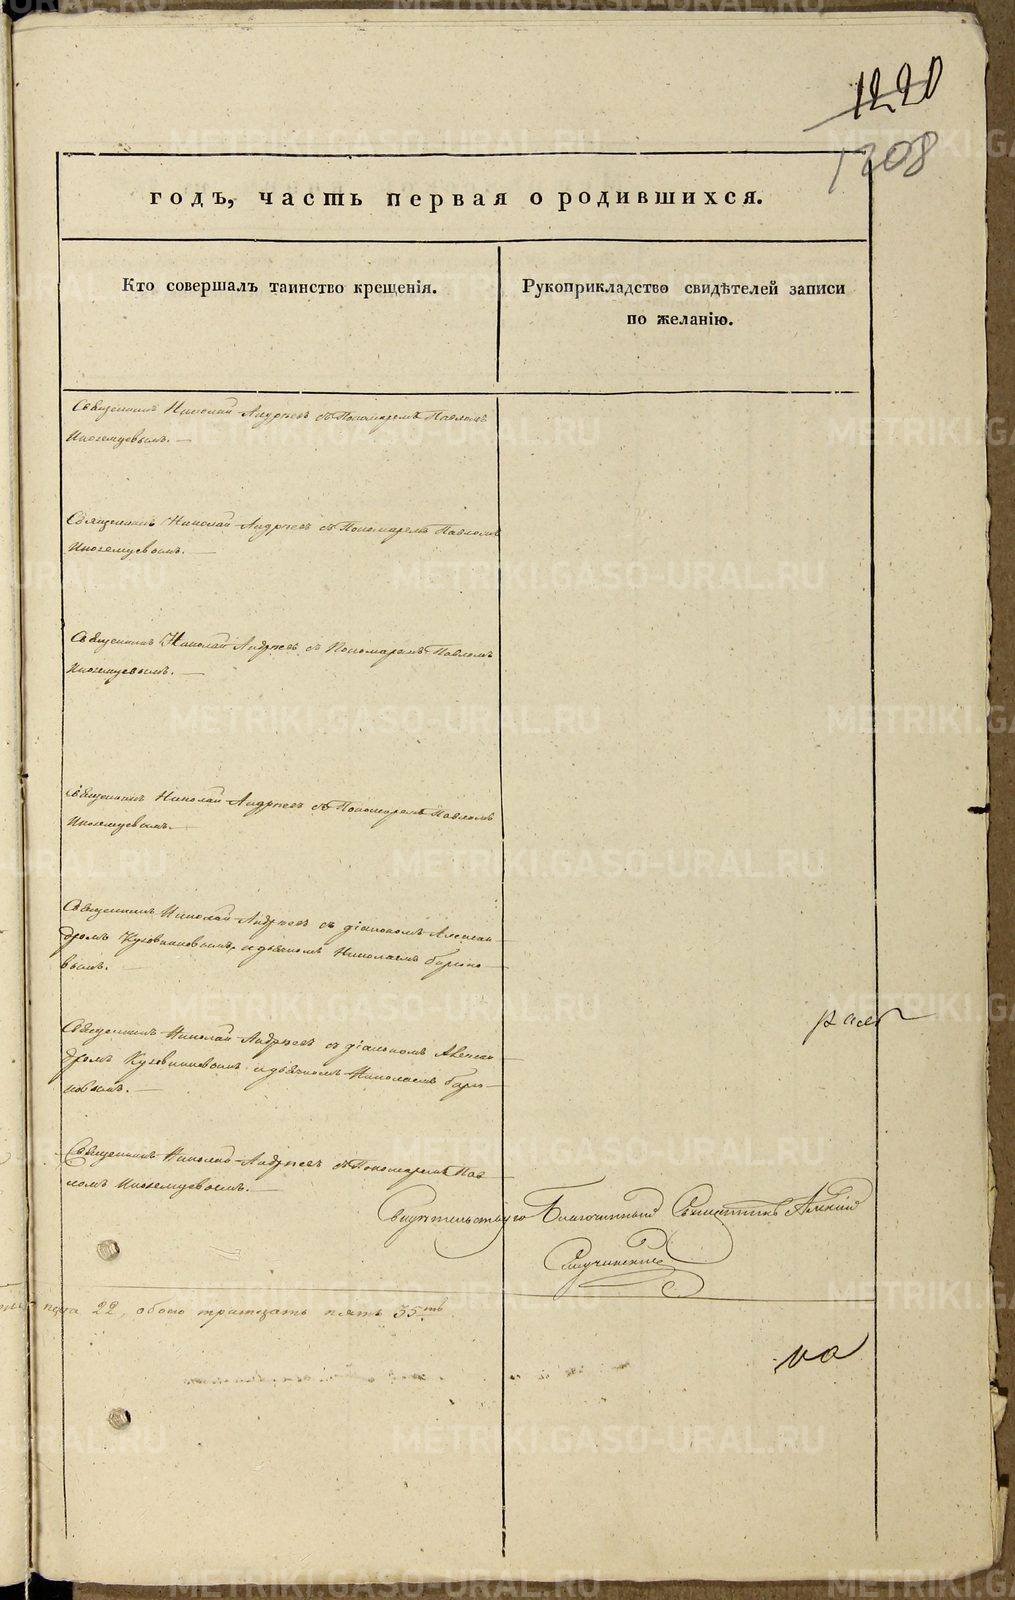 1220
1208
годъ, часть первая о родившихся.
Кто совершалъ таинство крещенія.
Рукоприкладство свидѣтелей записи
по желанію.
Священникъ Николай Андреевъ съ Пономаремъ Павломъ
Иноземцевымъ.
Священникъ Николай Андреевъ съ Пономаремъ Павломъ
Иноземцевымъ.
Священникъ Николай Андреевъ съ Пономаремъ Павломъ
Иноземцевымъ.
Священникъ Николай Андреевъ съ Пономаремъ Павломъ
Иноземцевымъ.
Священникъ Николай Андреевъ съ діакономъ Алексан
дромъ и дьячкомъ Николаемъ
вымъ.
Священникъ Николай Андреевъ съ діакономъ Алексан
дромъ и дьячкомъ Николаемъ
Священникъ Николай Андреевъ съ Пономаремъ Пав
ломъ Иноземцевымъ.
Свидѣтельствую Благочинный Священникъ
22, обоего тритцать пять 35
METRIKI.GASO-URAL.RU